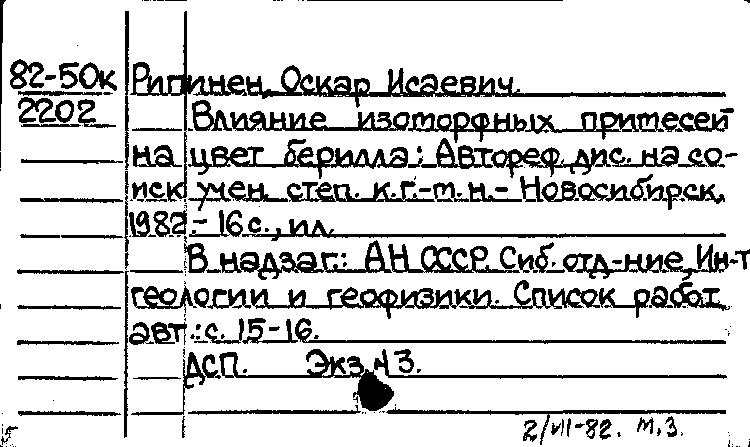 82-50к Рипинен, Оскар Исаевич.
2202 Влияние изоморфных примесей
на цвет берилла: Автореф. дис. на со-
иск. учен. степ. к.г.-м.н.- Новосибирск,
1982.- 16 с., ил.
В надзаг.: АН СССР. Сиб. отд-ние, Ин-т
геологии и геофизики. Список работ
авт.: с. 15-16.
ДСП. Экз. № 3.
2/VII-82. м.з.